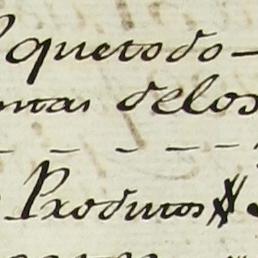 quetodo
ntas delos
Productos $